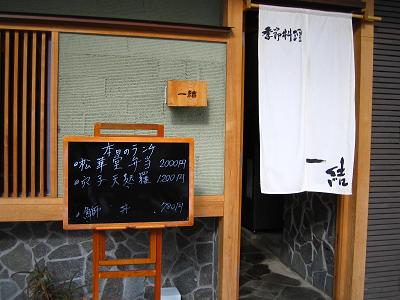 季節料理
一結
一結
本日のランチ
松華堂弁当 2000円
穴子天麩羅 1200円
鯛丼 780円